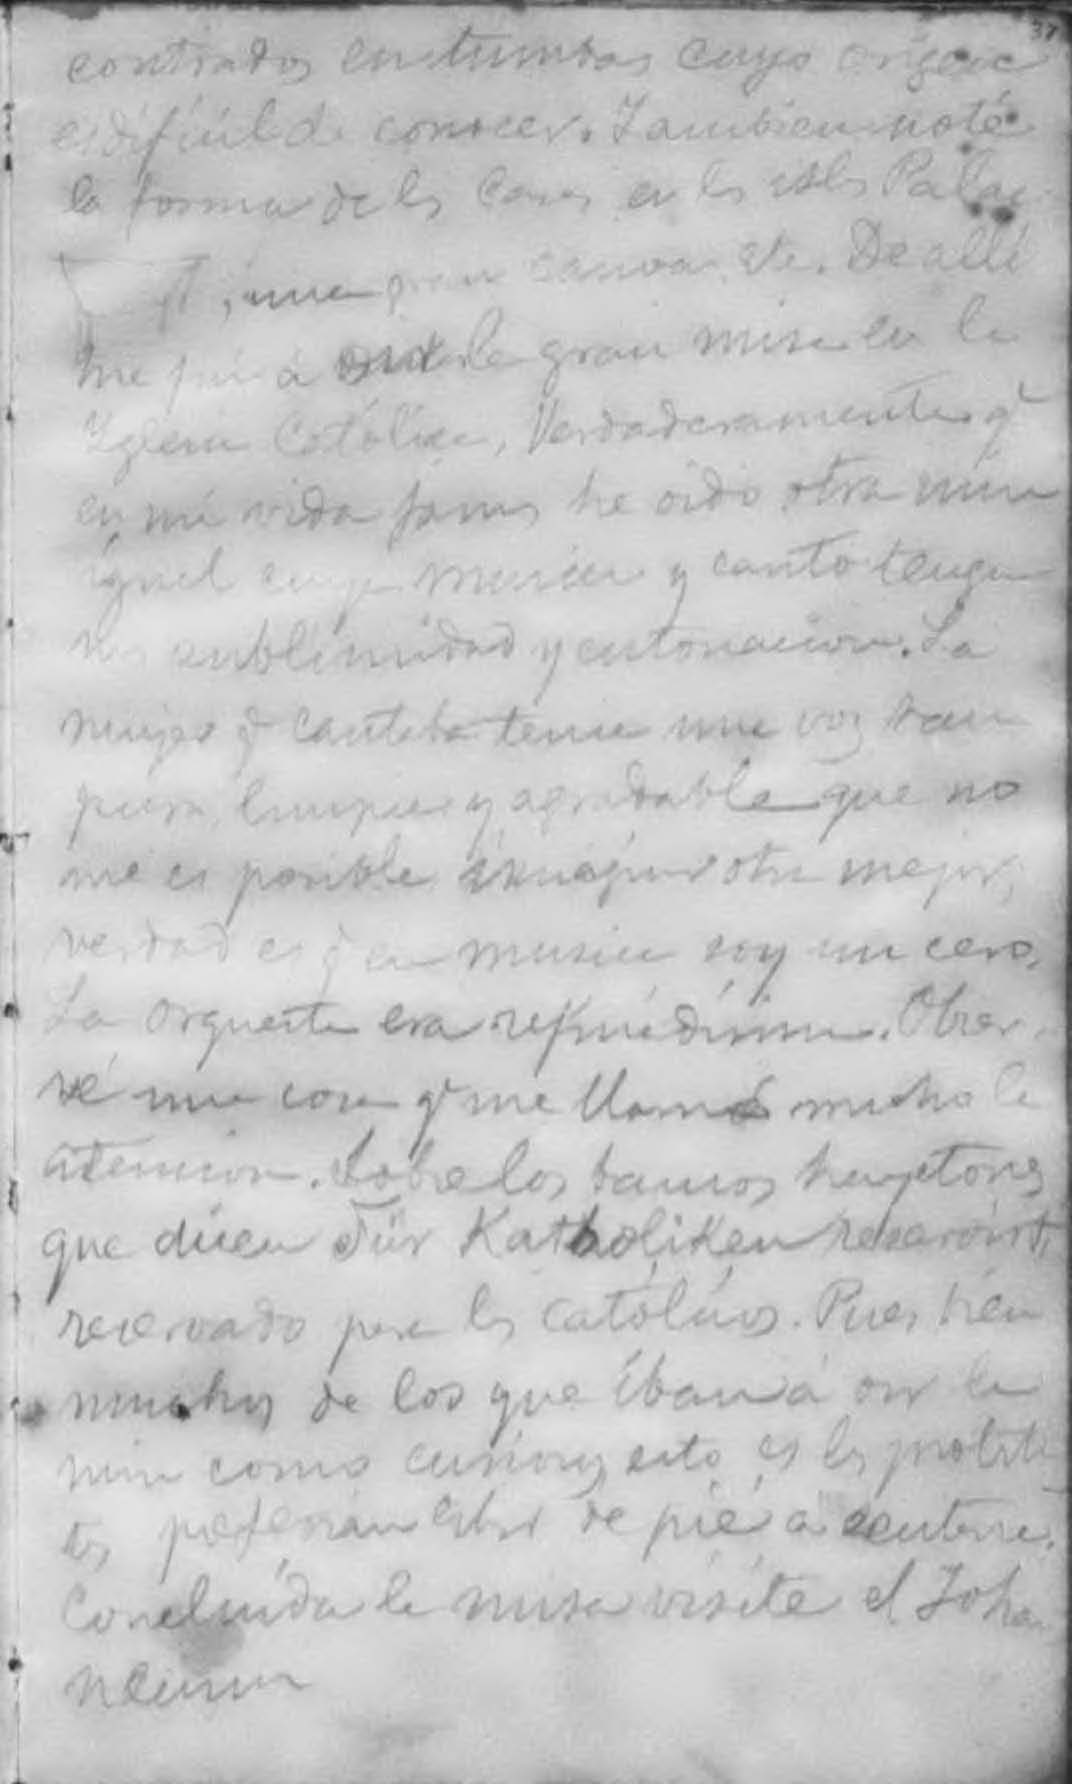 37
contrados en tumbas cuyo origen
es dificil de conocer. Tambien noté
la forma de las casas en las islas Palaos
, una gran canoa, etc. De allí
me fuí á oir la gran misa en la
Yglesia Católica, Verdaderamente q̃
en mi vida jamas he oido otra misa
igual cuya musica y canto tengan
mas sublimidad y entonacion. La
mujer q̃ cantaba tenia una voz tan
pura, limpia y agradable que no
me es posible imaginar otra mejor;
verdad es q̃ en musica soy un cero.
La orquesta era
Obser-
vé una cosa q̃ me llamó mucho la
atencion. Sobre los bancos hay letreros
que dicen Für Katholiken reserviert,
reservado para los católicos. Pues bien
muchos de los que íban á oir la
misa como curiosos, esto es los protestan
tes preferian estar de pié á sentarse.
Concluída la misa visité el Johan
neum